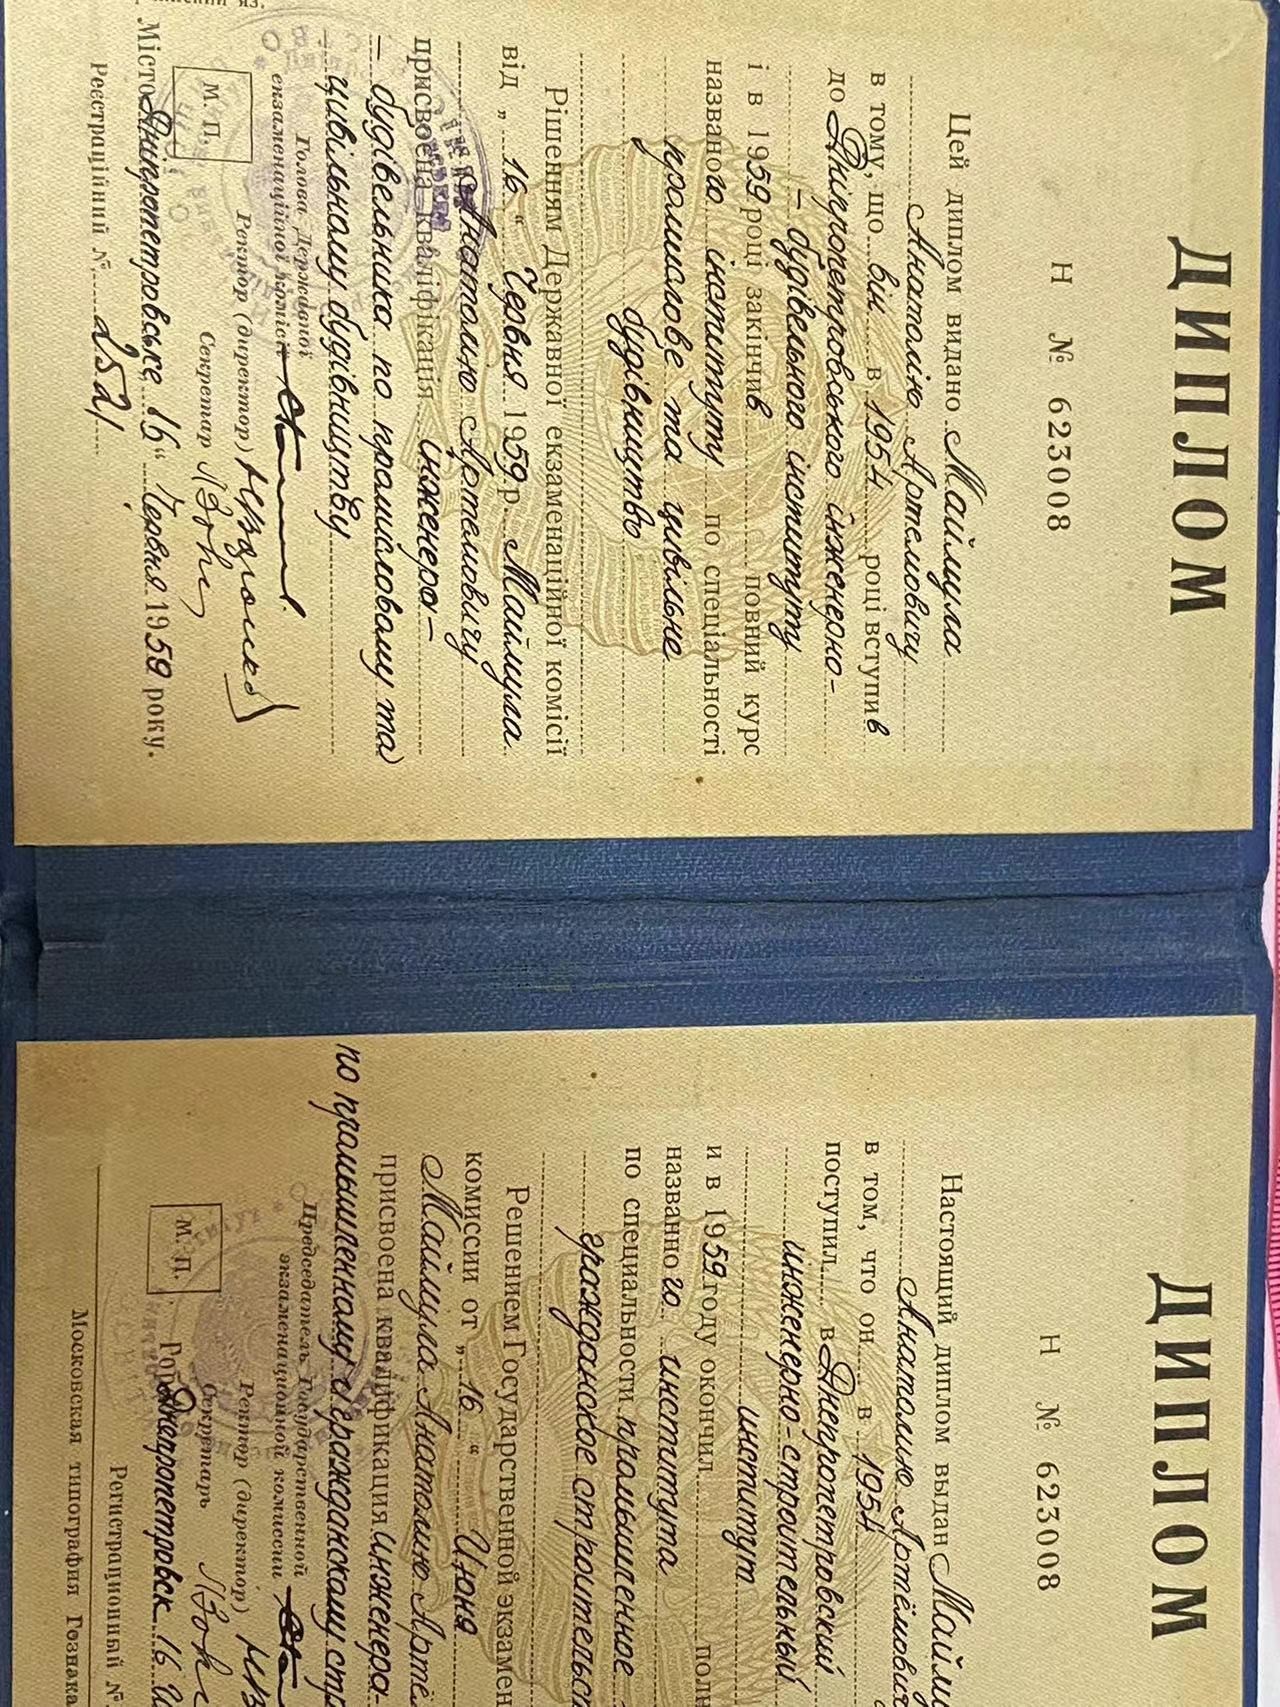 ДИПЛОМ
Н № 623008
Цей диплом видано Маймула
Анатолію Артемовичу
в тому, що він в 1954 році вступив
до Дніпропетровського інженерно-
– будівельного інституту
і в 1959 році закінчив повний курс
названого інституту по спеціальності
промислове та цивільне
будівництво
Рішенням Державної екзаменаційної комісії
від „16“ Червня 1959 р. Маймула
Анатолію Артемовичу
присвоєна кваліфікація інженера-
– будівельника по промисловому та
цивільному будівництву
Голова Державної
екзаменаційної комісії
Ректор (директор)
Секретар
М. П.
Місто Дніпропетровське „16“ Червня 1959 року.
Реєстраційний № 2521
ДИПЛОМ
Н № 623008
Настоящий диплом выдан
Анатолию
в том, что он в 1954
поступил в Днепропетровский
инженерно-строительный
институт
и в 1959 году окончил
названного института
по специальности промышленное
гражданское
Решением Государственной
комиссии от „16“ Июня
Маймула Анатолию
присвоена квалификация инженера-
по промышленному и гражданскому
Председатель Государственной
экзаменационной комиссии
Ректор (директор)
Секретарь
М. П.
Город Днепропетровск 16
Регистрационный №
Московская типография Гознака